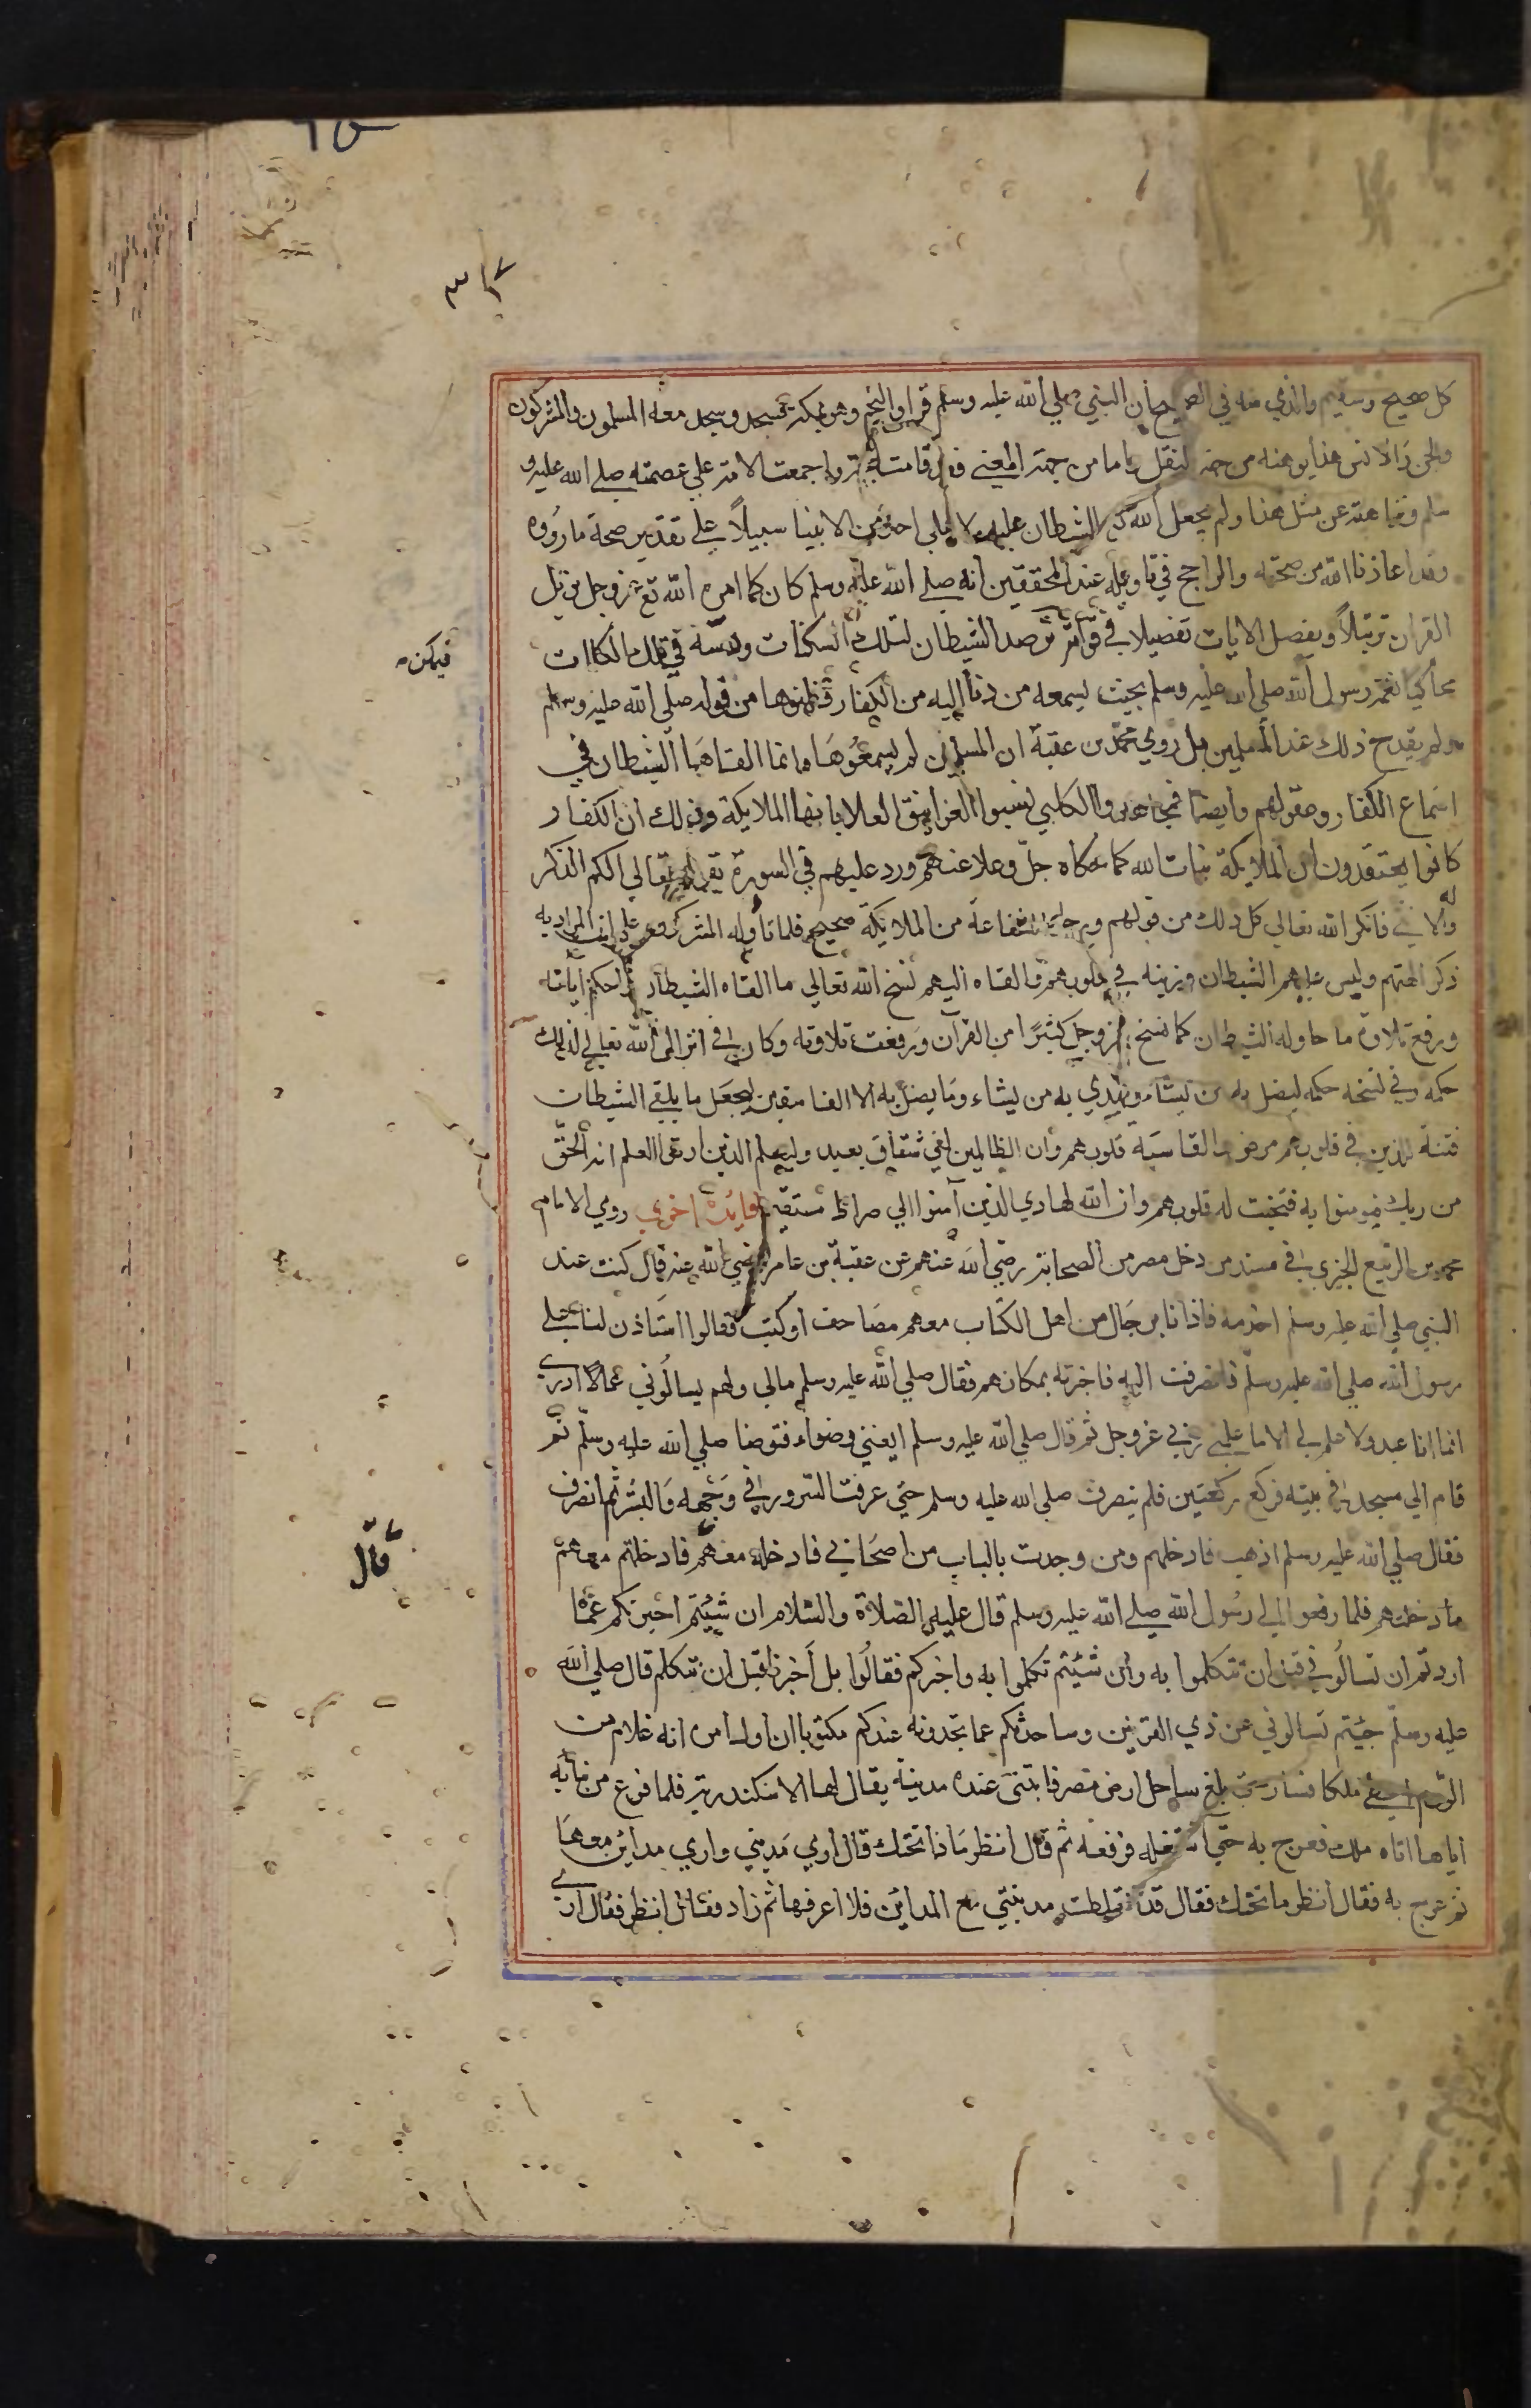 كل صحيح وسقيم والذي منه في الصحيح ان النبي صلي الله عليه وسلم قرا والنجم وهو بمكة فسجد وسجد معه المسلمون والمشركون
والجن والانس هذا يوهنه من جهة النقل واما من جهة المعني فقد قامت الحجة واجمعت الامة علي عصمته صلي الله عليه و
سلم ونزاهته عن مثل هذا ولم يجعل الله للشيطان عليه ولا علي احد من الانبيا سبيلاً علي تقدير صحة ما رووه
وقد اعاذنا الله من صحته والراجح في تاويله عند المحققين انه صلي الله عليه وسلم كان كما امره الله تع عزوجل يرتل
القران ترتيلاً ويفصل الايات تفصيلا في قراته ترصد الشيطان لتلك السكنات ودسه في تلك الكلمات
فيمكن
محاكيا نغمة رسول الله صلي الله عليه وسلم بحيث يسمعه من دنا اليه من الكفار فظنوها من قوله صلي الله عليه وسلم
ولم يقدح ذلك عند المسلمين بل روي محمد بن عقبة ان المسلمين لم يسمعوها وانما القاها الشيطان في
اسماع الكفار وعقولهم وايضا فمجاهد والكلبي فسروا الغرانيق العلا بانها الملايكة وذلك ان الكفار
كانوا يعتقدون ان الملايكة بنات الله كما حكاه جل وعلا عنهم ورد عليهم في السورة بقوله تعالي الكم الذكر
وله الانثي فانكر الله تعالي كل ذلك من قولهم ورجا الشفاعة من الملايكة صحيح فلما تأوله المشركون علي ان المراد به
ذكر الهتهم ولبس عليهم الشيطان وزينه في قلوبهم والقاه اليهم نسخ الله تعالي ما القاه الشيطان واحكم اياته
ورفع تلاوة ما حاوله الشيطان كما نسخ عزوجل كثيرًا من القرآن ورفعت تلاوته وكان في انزال الله تعالي لذلك
حكمة وفي نسخه حكمة ليضل به من يشاء ويهدي به من يشاء وما يضل به الا الفاسقين ليجعل ما يلقي الشيطان
فتنة للذين في قلوبهم مرض والقاسية قلوبهم وان الظالمين لفي شقاق بعيد وليعلم الذين اوتوا العلم انه الحق
من ربك فيومنوا به فتخبت له قلوبهم وان الله لهادي الذين آمنوا الي صراط مستقيم فايدة اخري روي الامام
محمد بن الربيع الجيزي في مسند من دخل مصر من الصحابة رضي الله عنهم عن عقبة بن عامر رضي الله عنه قال كنت عند
النبي صلي الله عليه وسلم اخدمه فاذا انا برجال من اهل الكتاب معهم مصاحف او كتب فقالوا استاذن لنا علي
رسول الله صلي الله عليه وسلم فانصرفت اليه فاخبرته بمكانهم فقال صلي الله عليه وسلم مالي ولهم يسالوني عما لا ادري
انما انا عبد ولا علم لي الا ما علمني ربي عزوجل ثم قال صلي الله عليه وسلم ابغني وضوء فتوضا صلي الله عليه وسلم ثم
قام الي مسجد في بيته فركع ركعتين فلم ينصرف صلي الله عليه وسلم حتي عرفت السرور في وجهه والبشر ثم انصرف
فقال صلي الله عليه وسلم اذهب فادخلهم ومن وجدت بالباب من اصحابي فادخله معهم فادخلتهم معهم
قال
ما دخلتهم فلما رفعوا الي رسول الله صلي الله عليه وسلم قال عليه الصلاة والسلام ان شيتم اخبرتكم عما
اردتم ان تسالوني قبل ان تتكلموا به وان شئيتم تكلموا به واخبركم فقالوا بل اخبرنا قبل ان نتكلم قال صلي الله
عليه وسلم جيتم تسالوني عن ذي القرنين وساحدثكم عما تجدونه عندكم مكتوبا ان اول امره انه غلام من
الروم اعطي ملكا فسار حتي بلغ ساحل ارض مصر فابتني عنده مدينة يقال لها الاسكندرية فلما فرغ من بنايه
اياها اتاه ملك فعرج به حتي استقله فرفعه ثم قال انظر ماذا تحتك قال اري مديني واري مداين معها
ثم عرج به فقال انظر ما تحتك فقال قد اختلطت مدينتي مع المداين فلا اعرفها ثم زاد فقال انظر فقال اري